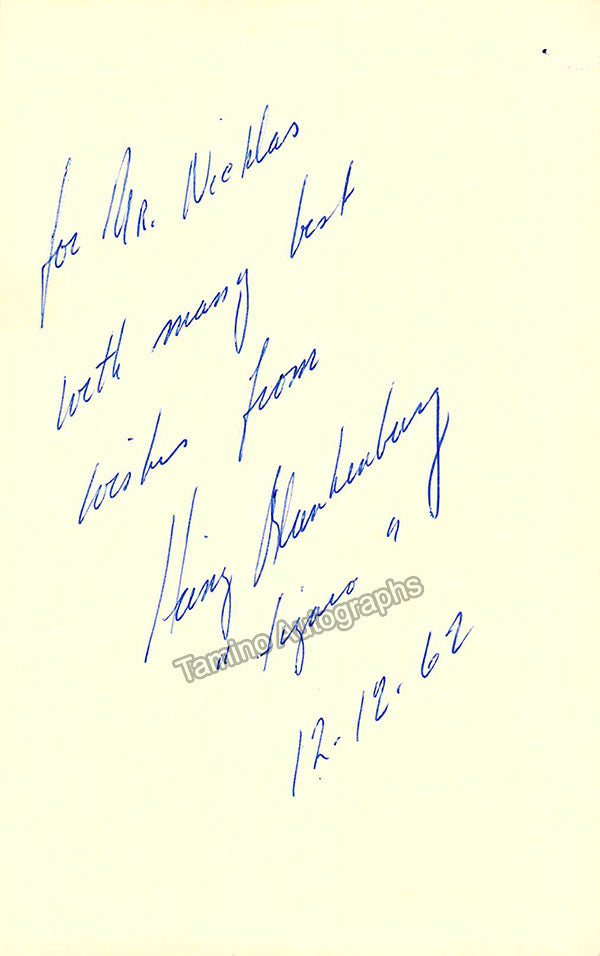 for Mr. Nicklas
with many best
wishes from
Heinz Blankenburg
"Figaro"
12.12.62
Tamino Autographs